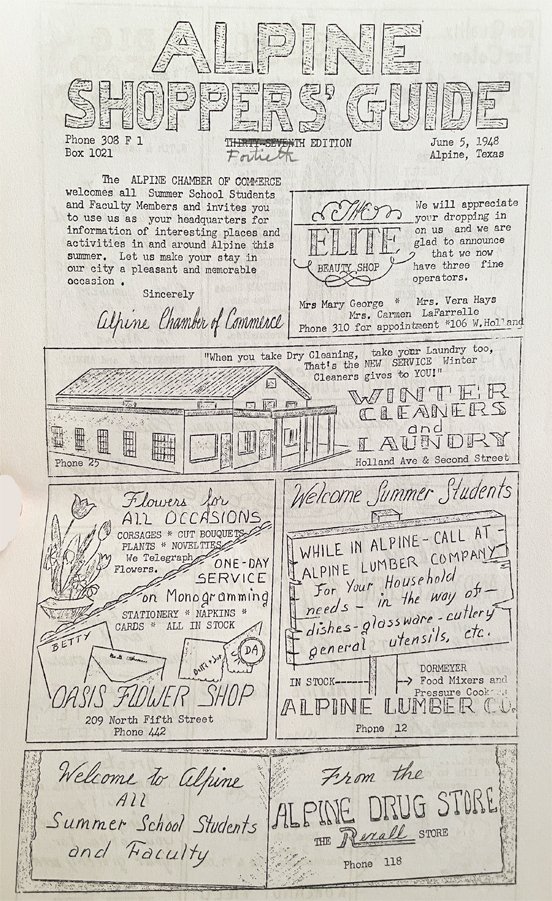 ALPINE
SHOPPERS' GUIDE
Phone 308 F 1
Box 1021
THIRTY-SEVENTH EDITION
Fortieth
June 5, 1948
Alpine, Texas
The ALPINE CHAMBER OF COMMERCE
welcomes all Summer School Students
and Faculty Members and invites you
to use us as your headquarters for
information of interesting places and
activities in and around Alpine this
summer. Let us make your stay in
our city a pleasant and memorable
occasion .
Sincerely
Alpine Chamber of Commerce
The
ELITE
BEAUTY SHOP
We will appreciate
your dropping in
on us and we are
glad to announce
that we now
have three fine
operators.
Mrs Mary George * Mrs. Vera Hays
Mrs. Carmen LaFarrelle
Phone 310 for appointment *106 W.Holland
"When you take Dry Cleaning, take your Laundry too,
That's the NEW SERVICE Winter
Cleaners gives to YOU!"
WINTER
CLEANERS
and
LAUNDRY
Phone 25
Holland Ave & Second Street
Flowers for
ALL OCCASIONS
CORSAGES * CUT BOUQUETS
PLANTS * NOVELTIES
We Telegraph
Flowers.
ONE-DAY
SERVICE
on Monogramming
STATIONERY * NAPKINS *
CARDS * ALL IN STOCK
BETTY
DA
OASIS FLOWER SHOP
209 North Fifth Street
Phone 442
Welcome Summer Students
WHILE IN ALPINE-CALL AT-
ALPINE LUMBER COMPANY
For Your Household
needs - in the way of-
dishes-glassware-cutlery
general utensils, etc.
IN STOCK
DORMEYER
Food Mixers and
Pressure Cook
ALPINE LUMBER CO.
Phone 12
Welcome to Alpine
All
Summer School Students
and Faculty
From the
ALPINE DRUG STORE
THE Rexall STORE
Phone 118